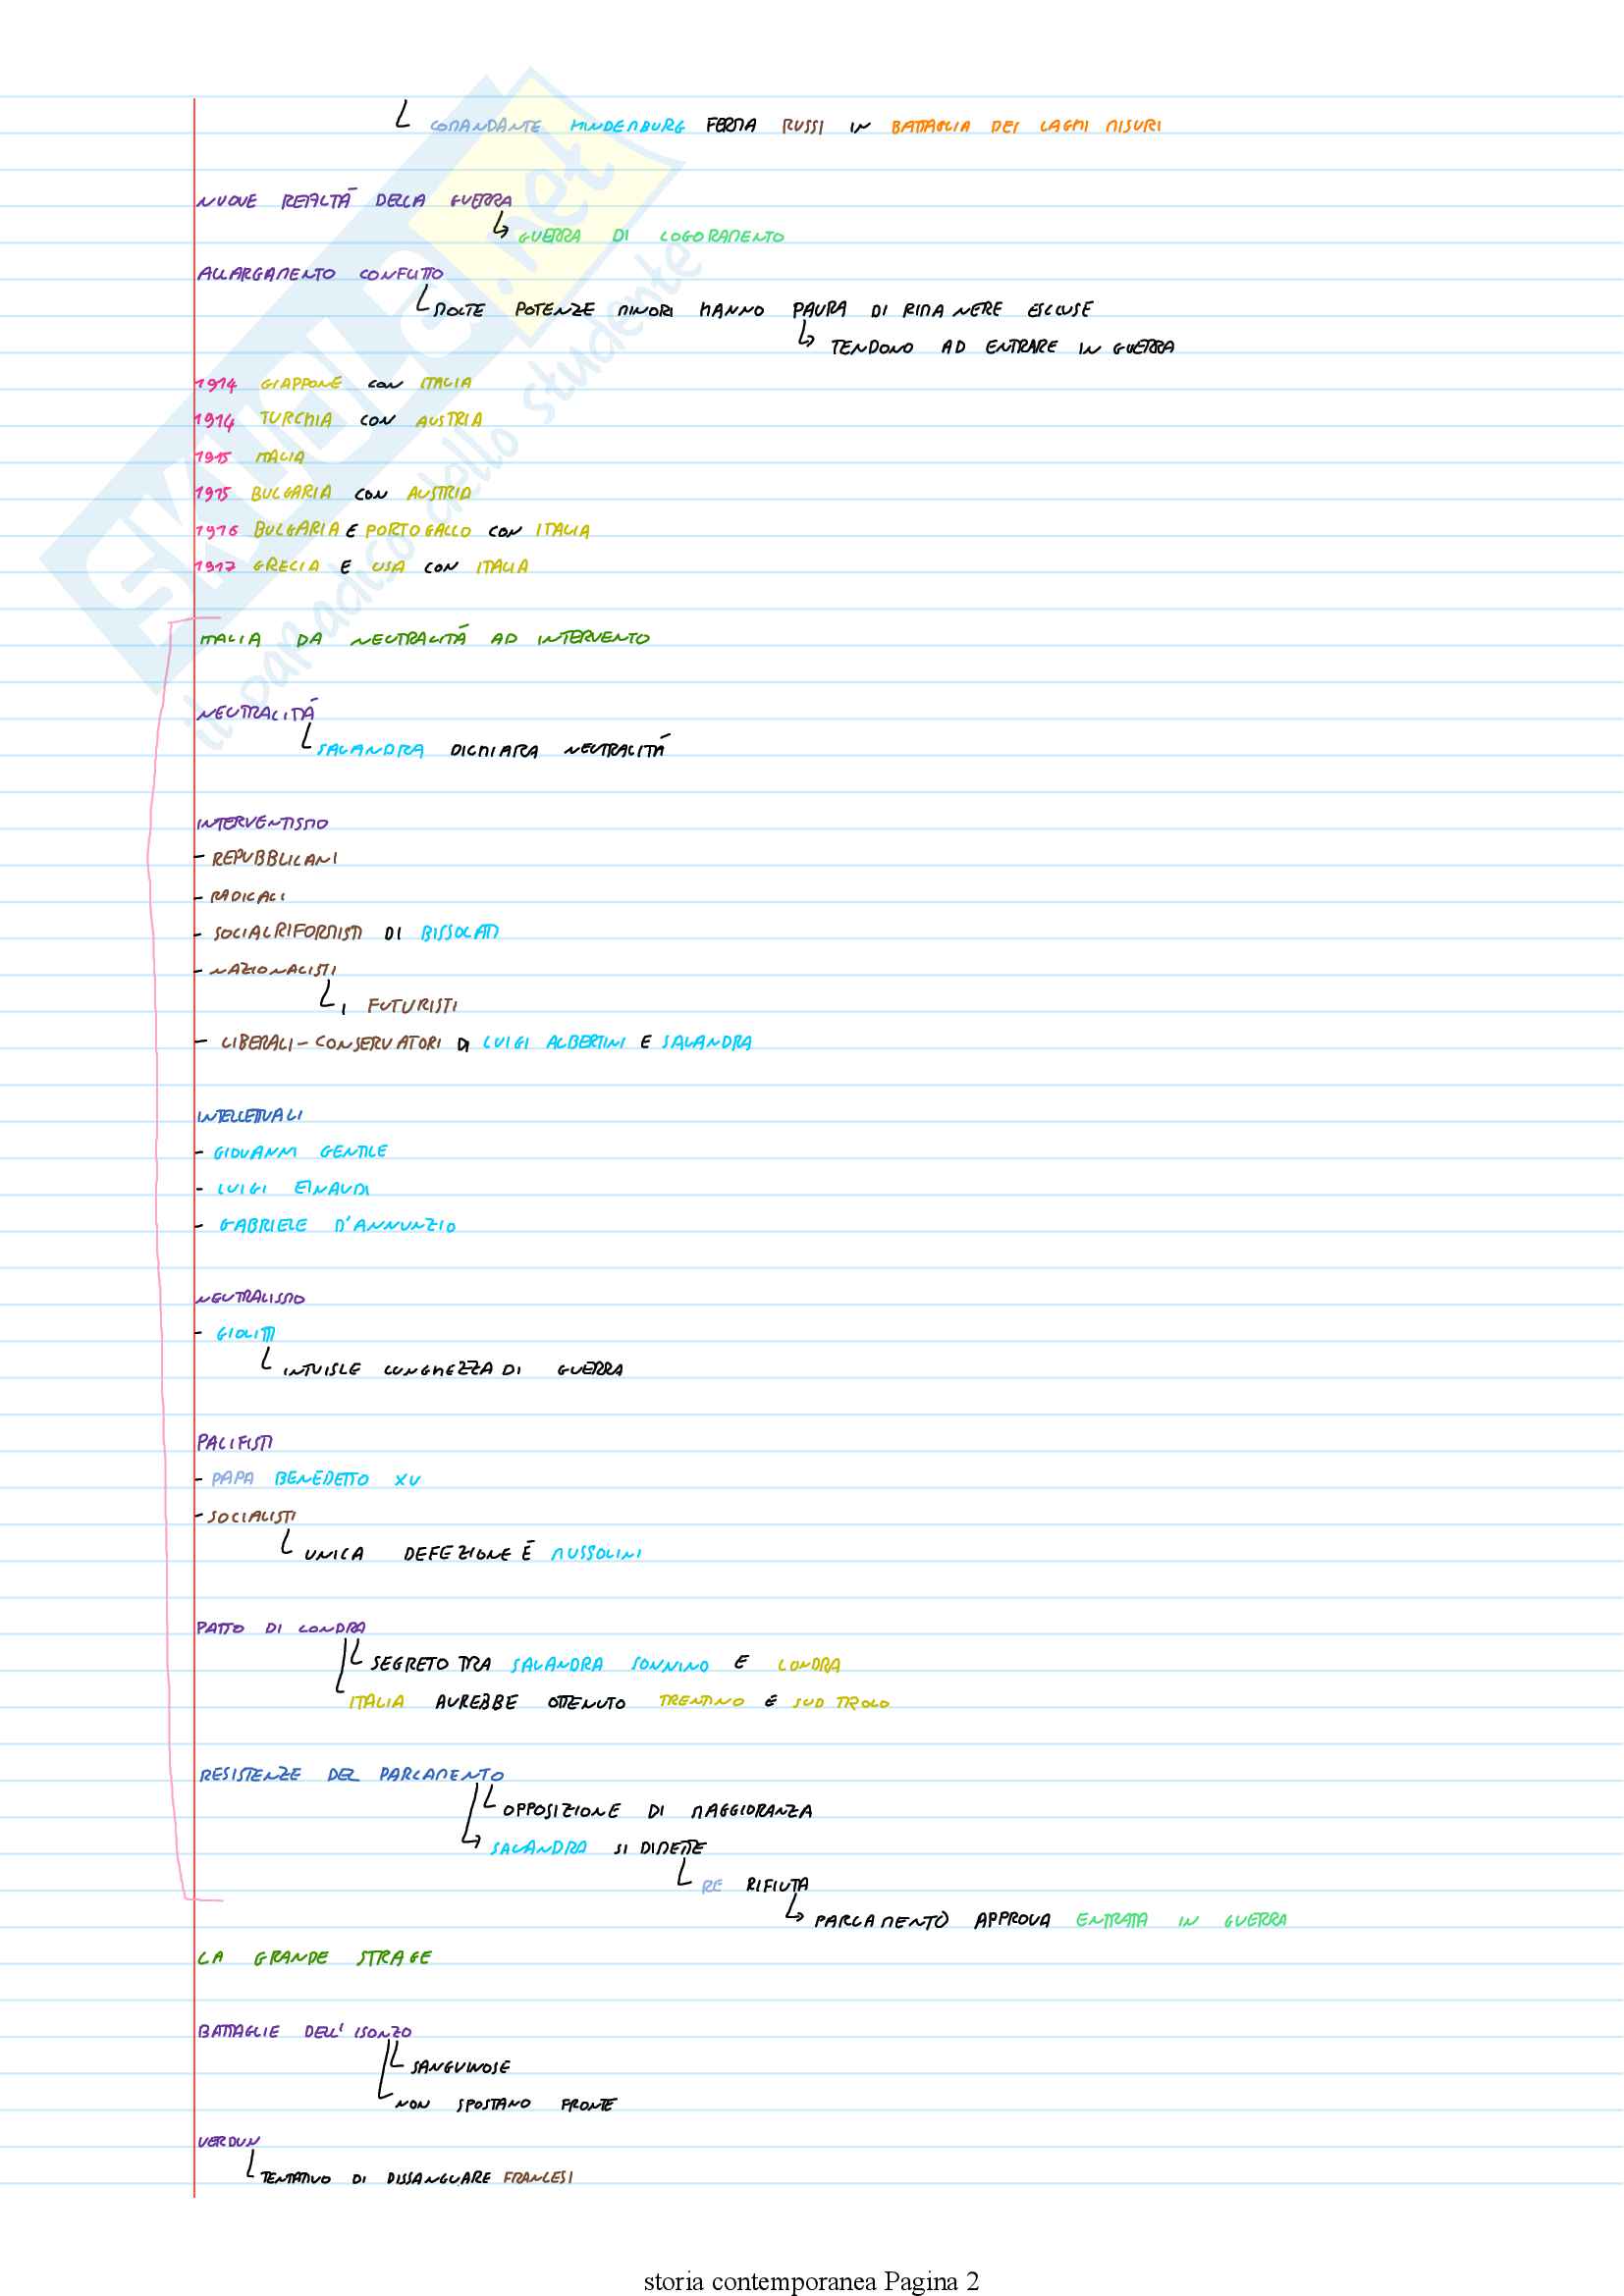 COMANDANTE HINDENBURG FERMA RUSSI IN BATTAGLIA DEI LAGHI MISURI
NUOVE REALTÁ DELLA GUERRA
GUERRA DI LOGORAMENTO
ALLARGAMENTO CONFLITTO
MOLTE POTENZE MINORI HANNO PAURA DI RIMANERE ESCLUSE
TENDONO AD ENTRARE IN GUERRA
1914 GIAPPONE CON ITALIA
1914 TURCHIA CON AUSTRIA
1915 ITALIA
1915 BULGARIA CON AUSTRIA
1916 BULGARIA E PORTOGALLO CON ITALIA
1917 GRECIA E USA CON ITALIA
ITALIA DA NEUTRALITÁ AD INTERVENTO
NEUTRALITÁ
SALANDRA DICHIARA NEUTRALITÁ
INTERVENTISMO
- REPUBBLICANI
- RADICALI
- SOCIALRIFORMISTI DI BISSOLATI
- NAZIONALISTI
I FUTURISTI
- LIBERALI-CONSERVATORI DI LUIGI ALBERTINI E SALANDRA
INTELLETTUALI
- GIOVANNI GENTILE
- LUIGI EINAUDI
- GABRIELE D'ANNUNZIO
NEUTRALISMO
- GIOLITTI
INTUISCE LUNGHEZZA DI GUERRA
PACIFISTI
- PAPA BENEDETTO XV
- SOCIALISTI
UNICA DEFEZIONE É MUSSOLINI
PATTO DI LONDRA
SEGRETO TRA SALANDRA SONNINO E LONDRA
ITALIA AVREBBE OTTENUTO TRENTINO E SUD TIROLO
RESISTENZE DEL PARLAMENTO
OPPOSIZIONE DI MAGGIORANZA
SALANDRA SI DIMETTE
RE RIFIUTA
PARLAMENTO APPROVA ENTRATA IN GUERRA
LA GRANDE STRAGE
BATTAGLIE DELL' ISONZO
SANGUINOSE
NON SPOSTANO FRONTE
VERDUN
TENTATIVO DI DISSANGUARE FRANCESI
SKUOLA.net
il paradiso dello studente
storia contemporanea Pagina 2